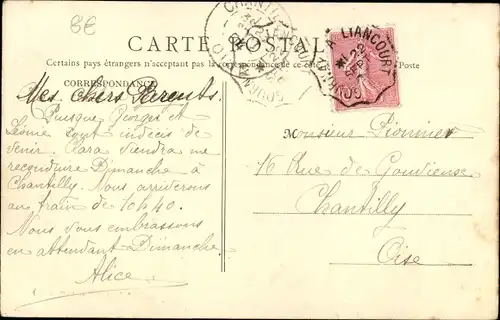 8E
CARTE POSTALE
Certains pays étrangers n'acceptant pas la correspondance de ce Poste
CORRESPONDANCE
Mes chers Parents.
Puisque Georges et
Léonie sont indécis de
venir. Clara viendra me
reconduire Dimanche à
Chantilly. Nous arriverons
au train de 10h40.
Nous vous embrassons
en attendant Dimanche
Alice
CHANTILLY
GOURNAY A LIANCOURT
22
SEPT
Monsieur Pionnier
16 Rue de Gouvieux
Chantilly
Oise